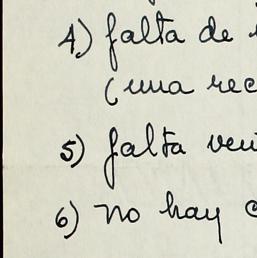 4) falta de
(una rec
5) falta ven
6) no hay